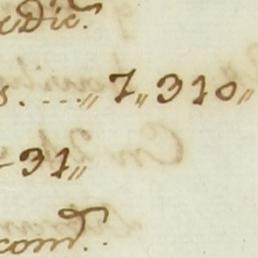 edic.
s. .... „ 7 „ 310 „
- 31 „
com.